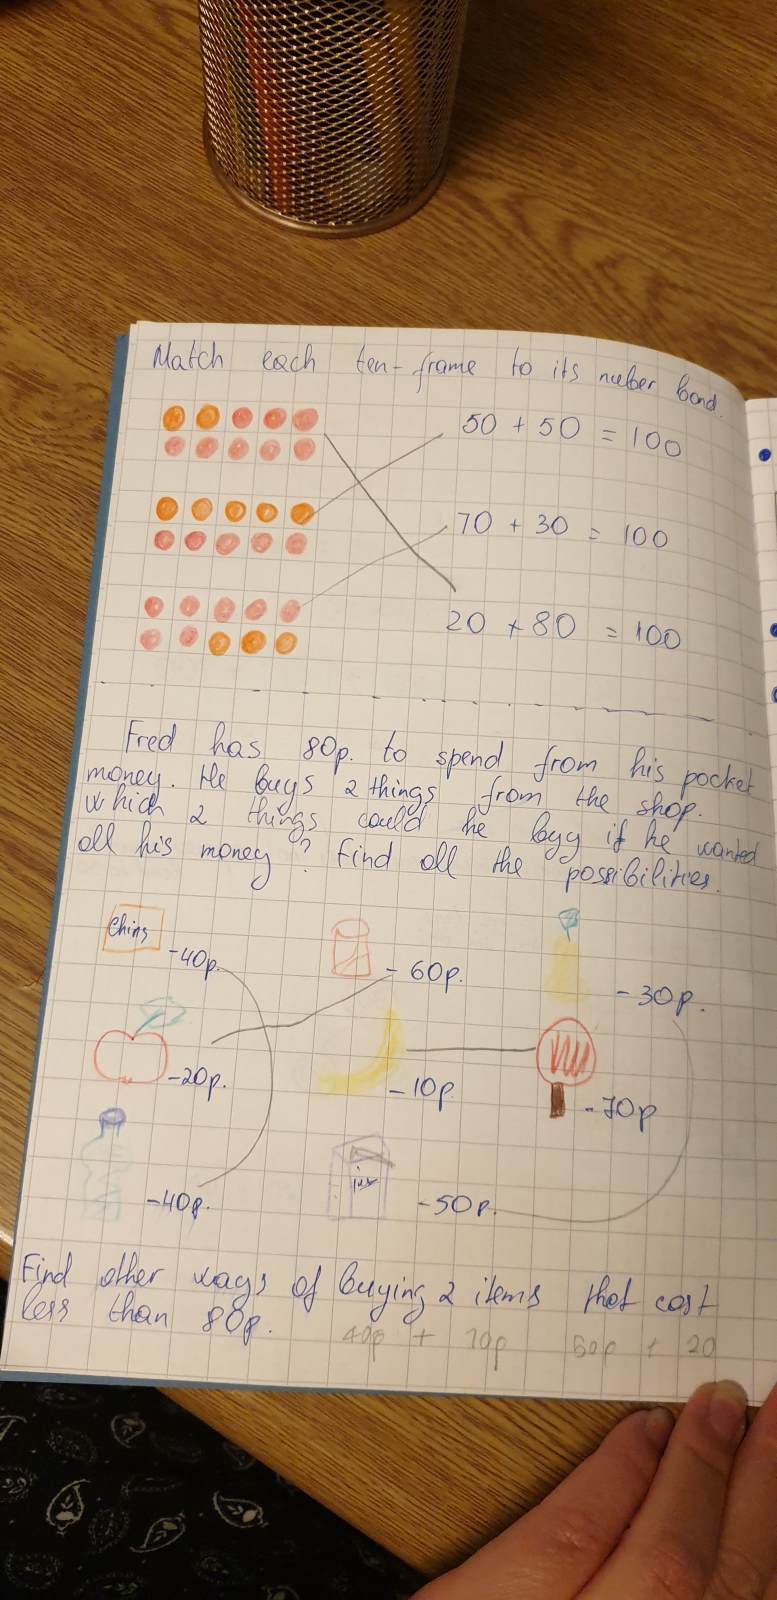 Match each ten-frame to its nuber bond.
50 + 50 = 100
70 + 30 = 100
20 + 80 = 100
Fred has 80p. to spend from his pocket
money. He buys 2 things from the shop.
which 2 things could he buy if he wanted
all his money? Find all the possibilities.
-40p.
-60p.
-30p.
-20p.
-10p
-70p
-40p.
-50p.
Find other ways of buying 2 items that cost
less than 80p.
40p + 10p 50p + 20